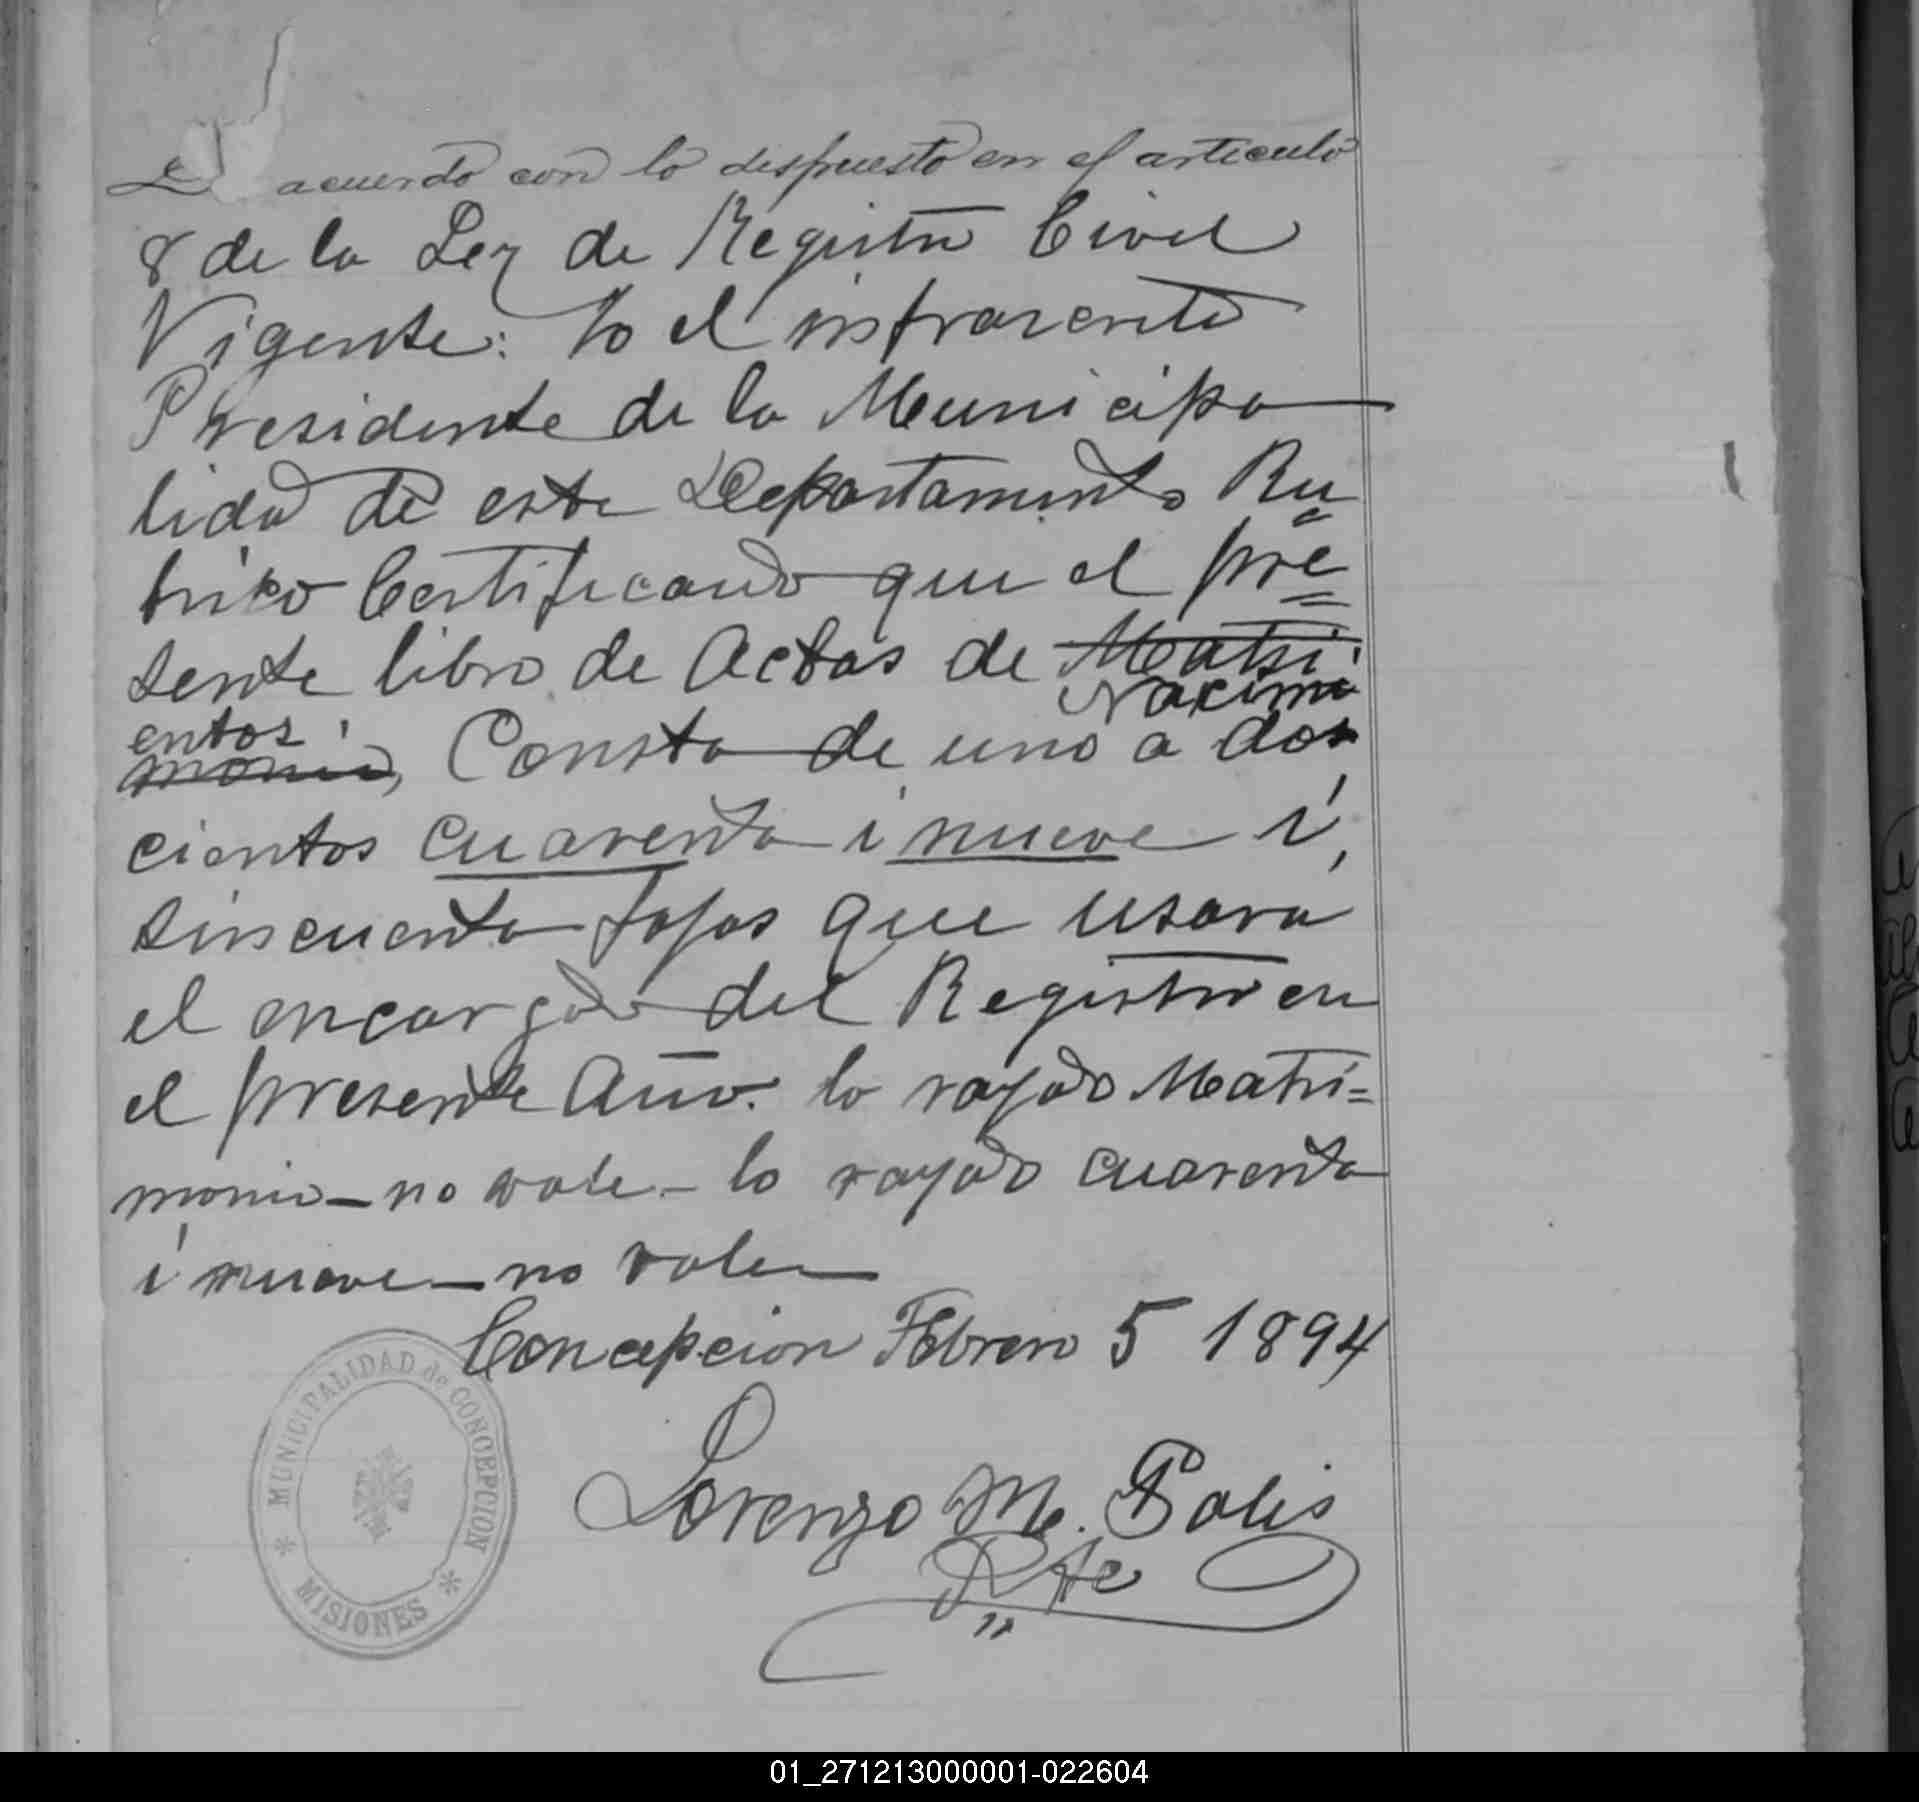 De acuerdo con lo dispuesto en el articulo
8 de la Ley de Registro Civil
Vigente: Yo el infrascrito
Presidente de la Municipa
lidad de este Departamento Ru
brico Certificando que el pre=
sente libro de Actas de Matri
Nacimi
entos
monio, Consta de uno a dos
cientos cuarenta i nueve i,
sincuenta fojas que usara
el encargado del Registro en
el presente Año. lo rayado Matri=
monio – no vale – lo rayado cuarenta
i nueve – no vale –
Concepcion Febrero 5 1894
MUNICIPALIDAD de CONCEPCION
* MISIONES *
Lorenzo M.
Pte
01_271213000001-022604